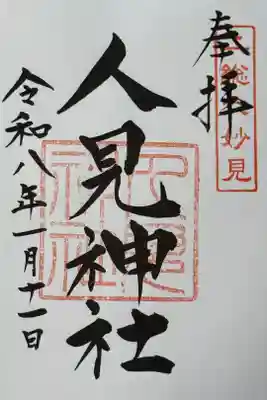 奉拝
妙見
人見神社
令和八年一月十一日